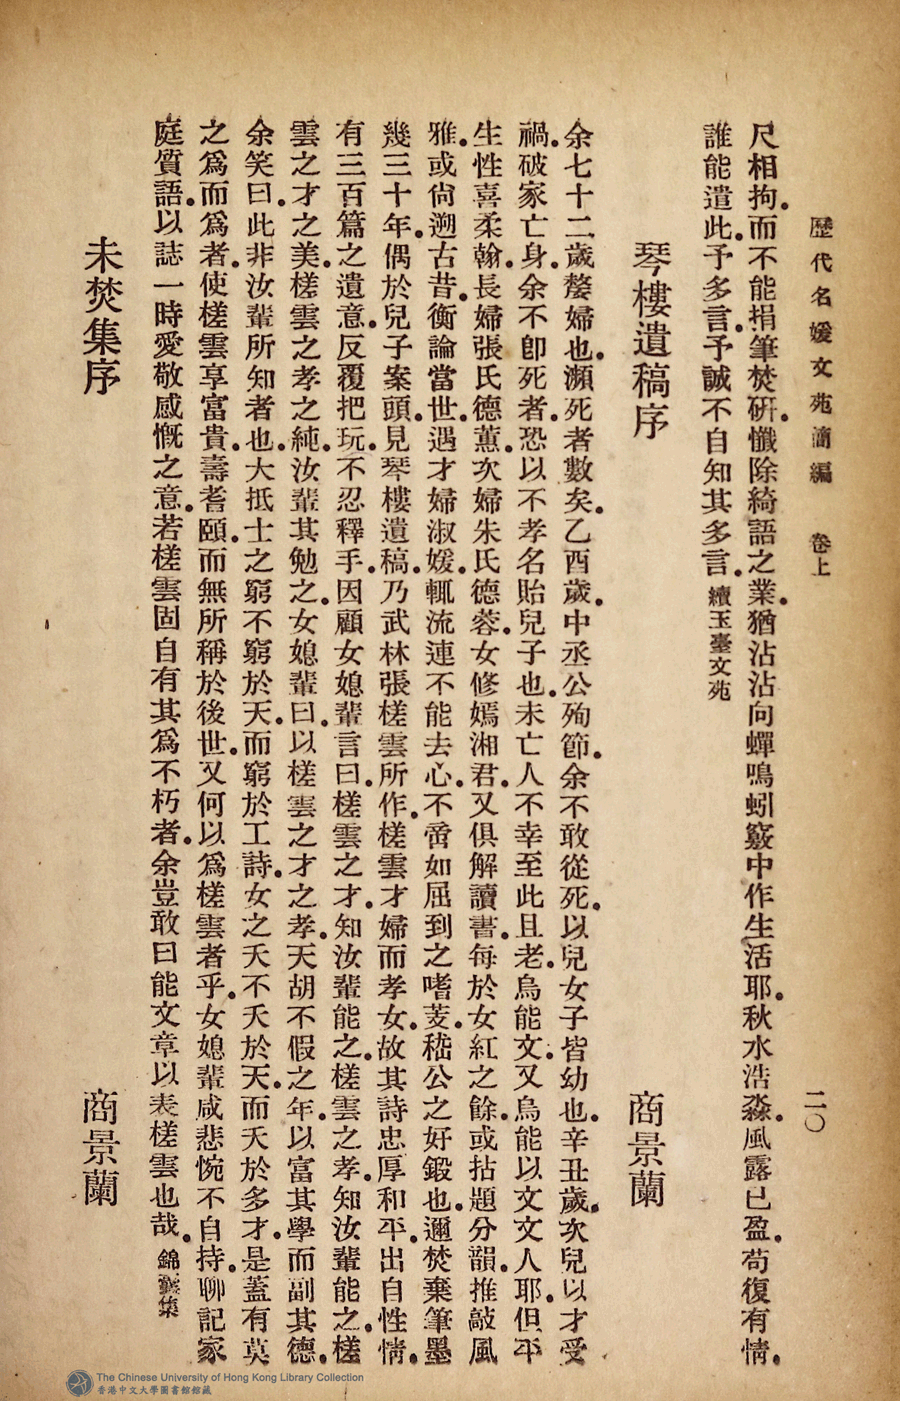 歷代名媛文苑簡編　卷上　二〇
尺相拘。而不能捐筆焚硏。懺除綺語之業。猶沾沾向蟬鳴蚓竅中作生活耶。秋水浩淼。風露已盈。苟復有情。
誰能遣此。予多言。予誠不自知其多言。續玉臺文苑
琴樓遺稿序　商景蘭
余七十二歲嫠婦也。瀕死者數矣。乙酉歲。中丞公殉節。余不敢從死。以兒女子皆幼也。辛丑歲。次兒以才受
禍。破家亡身。余不卽死者。恐以不孝名貽兒子也。未亡人不幸至此且老。烏能文。又烏能以文文人耶。但平
生性喜柔翰。長婦張氏德蕙。次婦朱氏德蓉。女修嫣湘君。又俱解讀書。每於女紅之餘。或拈題分韻。推敲風
雅。或尙遡古昔。衡論當世。遇才婦淑媛。輒流連不能去心。不啻如屈到之嗜芰。嵇公之好鍛也。邇焚棄筆墨
幾三十年。偶於兒子案頭。見琴樓遺稿。乃武林張槎雲所作。槎雲才婦而孝女。故其詩忠厚和平。出自性情。
有三百篇之遺意。反覆把玩。不忍釋手。因顧女媳輩言曰。槎雲之才。知汝輩能之。槎雲之孝。知汝輩能之。槎
雲之才之美。槎雲之孝之純。汝輩其勉之。女媳輩曰。以槎雲之才之孝。天胡不假之年。以富其學而副其德。
余笑曰。此非汝輩所知者也。大抵士之窮不窮於天。而窮於工詩。女之夭不夭於天。而夭於多才。是蓋有莫
之爲而爲者。使槎雲享富貴。壽耆頤。而無所稱於後世。又何以爲槎雲者乎。女媳輩咸悲惋不自持。聊記家
庭質語。以誌一時愛敬感慨之意。若槎雲固自有其爲不朽者。余豈敢曰能文章以表槎雲也哉。錦囊集
未焚集序　商景蘭
The Chinese University of Hong Kong Library Collection
香港中文大學圖書館館藏